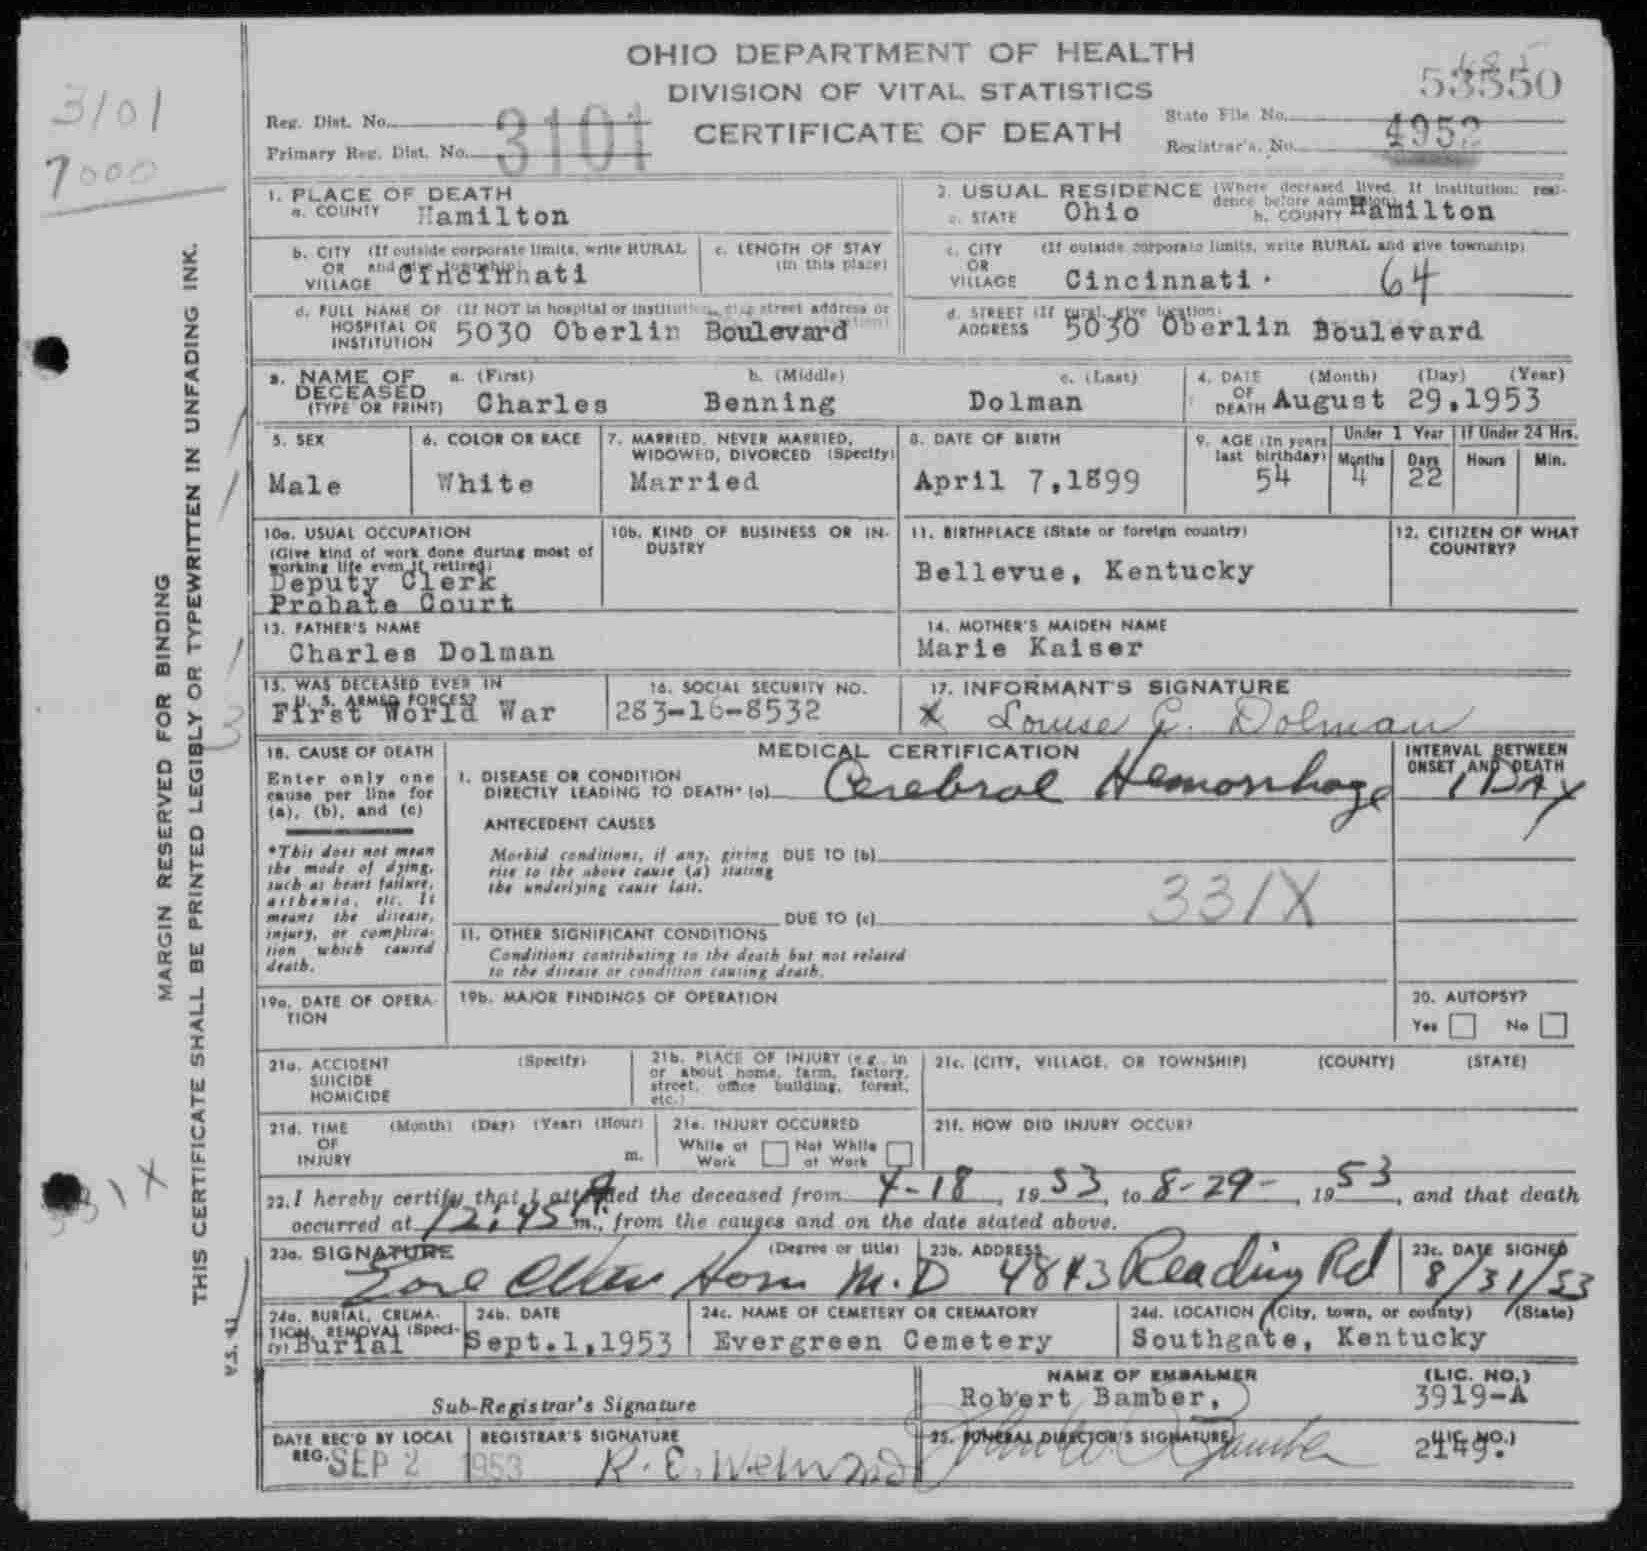 OHIO DEPARTMENT OF HEALTH
DIVISION OF VITAL STATISTICS
CERTIFICATE OF DEATH
3101
7000
Reg. Dist. No.
Primary Reg. Dist. No. 3101
State File No. 53550
Registrar's No. 4952
1. PLACE OF DEATH
a. COUNTY Hamilton
2. USUAL RESIDENCE (Where deceased lived. If institution: resi-
dence before admission)
a. STATE Ohio b. COUNTY Hamilton
b. CITY (If outside corporate limits, write RURAL
OR and give township)
VILLAGE Cincinnati
c. LENGTH OF STAY
(in this place)
c. CITY (If outside corporate limits, write RURAL and give township)
OR
VILLAGE Cincinnati. 64
d. FULL NAME OF (If NOT in hospital or institution, give street address or
location)
HOSPITAL OR
INSTITUTION 5030 Oberlin Boulevard
d. STREET (If rural, give location)
ADDRESS 5030 Oberlin Boulevard
3. NAME OF
DECEASED
(TYPE OR PRINT)
a. (First) b. (Middle) c. (Last)
Charles Benning Dolman
4. DATE (Month) (Day) (Year)
OF
DEATH August 29,1953
5. SEX
Male
6. COLOR OR RACE
White
7. MARRIED, NEVER MARRIED,
WIDOWED, DIVORCED (Specify)
Married
8. DATE OF BIRTH
April 7,1899
9. AGE (In years
last birthday)
54
Under 1 Year If Under 24 Hrs.
Months Days Hours Min.
4 22
10a. USUAL OCCUPATION
(Give kind of work done during most of
working life even if retired)
Deputy Clerk
Probate Court
10b. KIND OF BUSINESS OR IN-
DUSTRY
11. BIRTHPLACE (State or foreign country)
Bellevue, Kentucky
12. CITIZEN OF WHAT
COUNTRY?
13. FATHER'S NAME
Charles Dolman
14. MOTHER'S MAIDEN NAME
Marie Kaiser
15. WAS DECEASED EVER IN
U. S. ARMED FORCES?
First World War
16. SOCIAL SECURITY NO.
283-16-8532
17. INFORMANT'S SIGNATURE
X Louise G. Dolman
18. CAUSE OF DEATH
Enter only one
cause per line for
(a), (b), and (c)
*This does not mean
the mode of dying,
such as heart failure,
asthenia, etc. It
means the disease,
injury, or complica-
tion which caused
death.
MEDICAL CERTIFICATION
I. DISEASE OR CONDITION
DIRECTLY LEADING TO DEATH* (a) Cerebral Hemorrhage
INTERVAL BETWEEN
ONSET AND DEATH
1 DAY
ANTECEDENT CAUSES
Morbid conditions, if any, giving DUE TO (b)
rise to the above cause (a) stating
the underlying cause last.
331X
DUE TO (c)
11. OTHER SIGNIFICANT CONDITIONS
Conditions contributing to the death but not related
to the disease or condition causing death.
19a. DATE OF OPERA-
TION
19b. MAJOR FINDINGS OF OPERATION
20. AUTOPSY?
Yes No
21a. ACCIDENT (Specify)
SUICIDE
HOMICIDE
21b. PLACE OF INJURY (e.g., in
or about home, farm, factory,
street, office building, forest,
etc.)
21c. (CITY, VILLAGE, OR TOWNSHIP) (COUNTY) (STATE)
21d. TIME (Month) (Day) (Year) (Hour)
OF
INJURY m.
21e. INJURY OCCURRED
While at Work Not While at Work
21f. HOW DID INJURY OCCUR?
22. I hereby certify that I attended the deceased from 4-18, 1953, to 8-29-, 1953, and that death
occurred at 12:45 P.m., from the causes and on the date stated above.
23a. SIGNATURE (Degree or title)
M.D
23b. ADDRESS
4843 Reading Rd
23c. DATE SIGNED
8/31/53
24a. BURIAL, CREMA-
TION, REMOVAL (Speci-
fy) Burial
24b. DATE
Sept.1,1953
24c. NAME OF CEMETERY OR CREMATORY
Evergreen Cemetery
24d. LOCATION (City, town, or county) (State)
Southgate, Kentucky
Sub-Registrar's Signature
NAME OF EMBALMER (LIC. NO.)
Robert Bamber, 3919-A
DATE REC'D BY LOCAL
REG. SEP 2 1953
REGISTRAR'S SIGNATURE
25. FUNERAL DIRECTOR'S SIGNATURE (LIC. NO.)
2149.
MARGIN RESERVED FOR BINDING
THIS CERTIFICATE SHALL BE PRINTED LEGIBLY OR TYPEWRITTEN IN UNFADING INK.
331X
V.S. 41